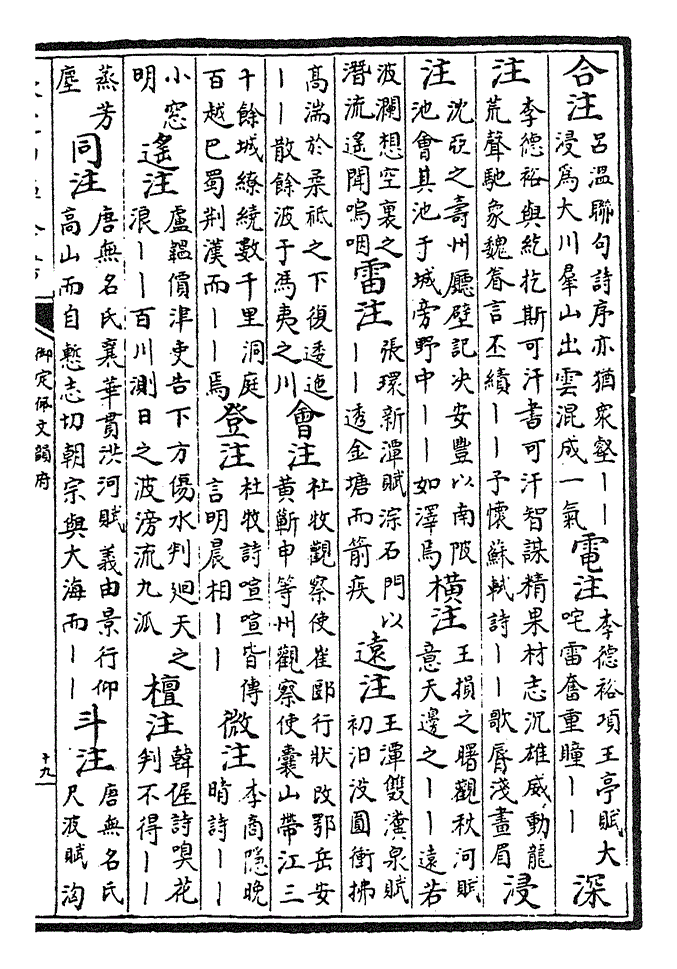 合注
呂溫聯句詩序亦猶衆壑丨丨
浸爲大川羣山出雲混成一氣
電注
李德裕項王亭賦大
咤雷奮重瞳丨丨
深
注
李德裕與紇扢斯可汗書可汗智謀精果材志沉雄威動龍
荒聲馳象魏眷言丕績丨丨予懷蘇軾詩丨丨歌脣淺畫眉
浸
注
沈亞之壽州廳壁記決安豐以南陂
池會其池于城旁野中丨丨如澤焉
橫注
王損之曙觀秋河賦
意天邊之丨丨遠若
波瀾想空裏之
潛流遙聞嗚咽
雷注
張環新潭賦淙石門以
丨丨透金塘而箭疾
遠注
王潭雙瀵泉賦
初汨沒圓衝拂
高湍於柔祗之下復逶迤
丨丨散餘波于馮夷之川
會注
杜牧觀察使崔郾行狀改鄂岳安
黃蘄申等州觀察使囊山帶江三
十餘城繚繞數千里洞庭
百越巴蜀荆漢而丨丨焉
登注
杜牧詩喧喧皆傳
言明晨相丨丨
微注
李商隱晚
晴詩丨丨
小窓
明
遙注
盧韞價津吏告下方傷水判廻天之
浪丨丨百川測日之波滂流九派
檀注
韓偓詩嗅花
判不得丨丨
蒸芳
塵
同注
唐無名氏襄華貫洪河賦義由景行仰
高山而自慙志切朝宗與大海而丨丨
斗注
唐無名氏
尺波賦洶
御定佩文韻府
十九